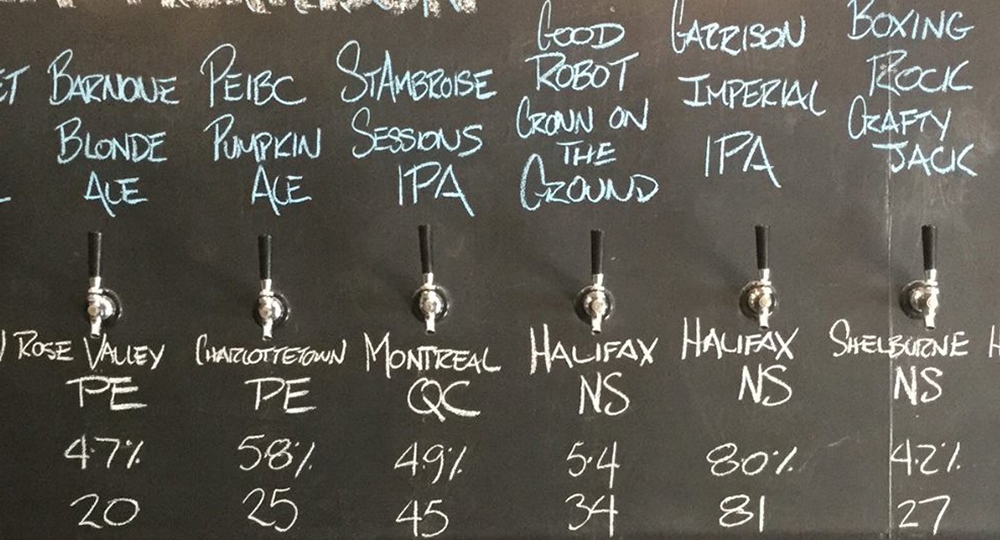 BARNONE
BLONDE
ALE
ROSE VALLEY
PE
4.7%
20
PEIBC
PUMPKIN
ALE
CHARLOTTETOWN
PE
5.8%
25
STAMBROISE
SESSIONS
IPA
MONTREAL
QC
4.9%
45
GOOD
ROBOT
CROWN ON
THE
GROUND
HALIFAX
NS
5.4
34
GARRISON
IMPERIAL
IPA
HALIFAX
NS
8.0%
81
BOXING
ROCK
CRAFTY
JACK
SHELBURNE
NS
4.2%
27